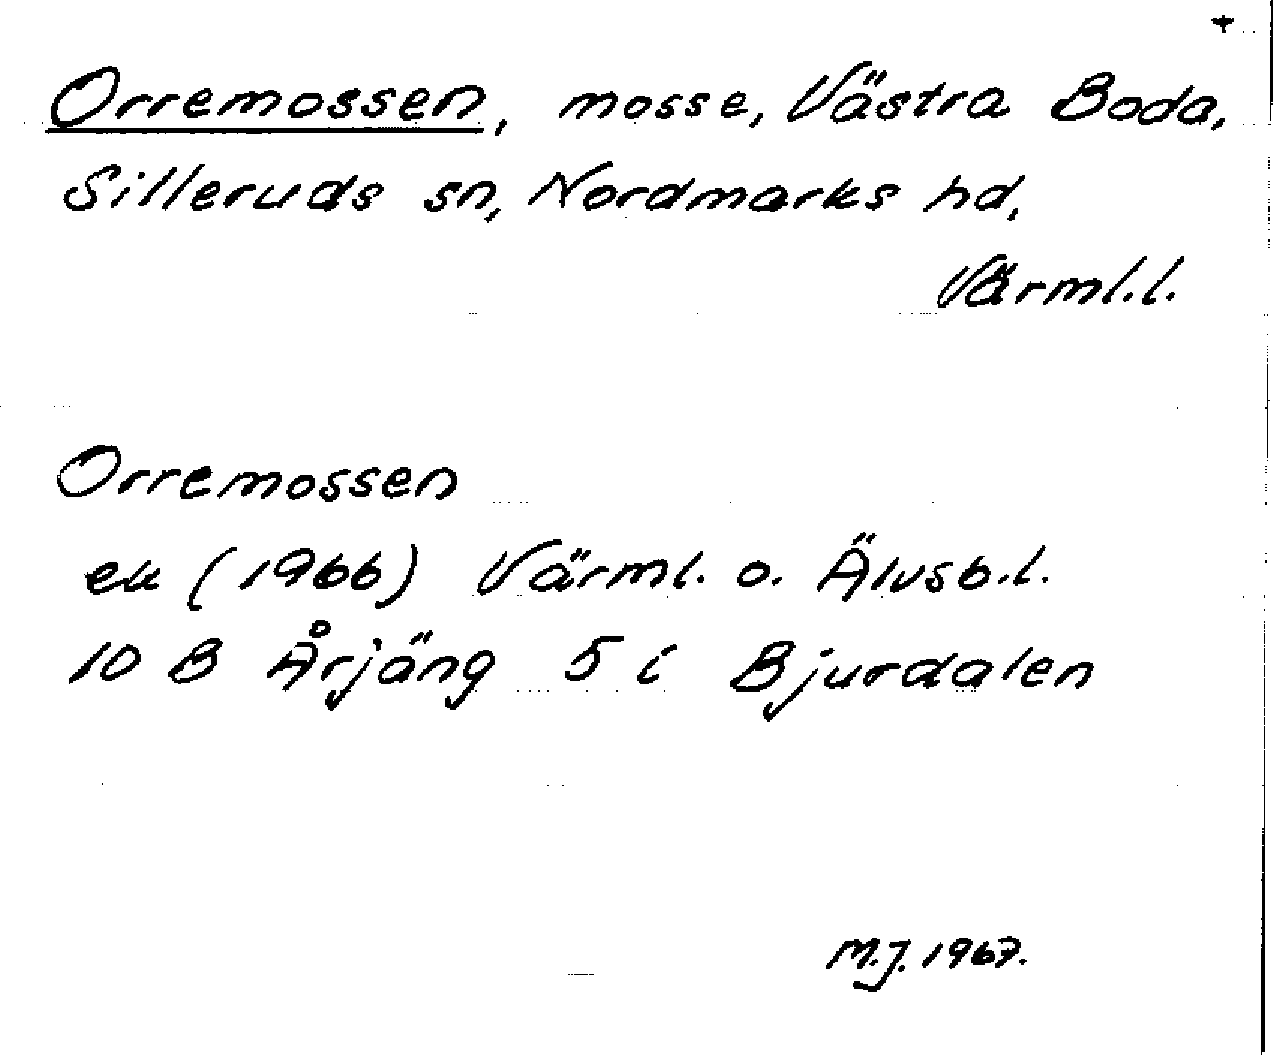 Orremossen, mosse, Västra Boda,
Silleruds sn, Nordmarks hd,
Värml.l.
Orremossen
ek (1966) Värml. o. Älvsb.l.
10 B Årjäng 5 i Bjurdalen
M.J. 1967.